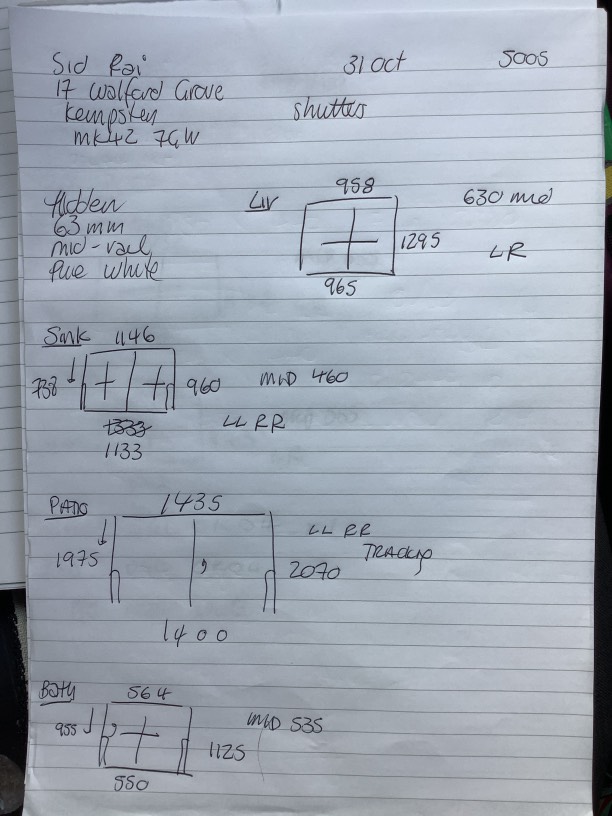 Sid Rai 31 Oct 5005
17 Wolford Grove
Kempston
MK42 7GW
shutters
Hidden
63 mm
mid-rail
Pure white
Liv
958
1295
965
630 mid
LR
Sink 1146
738
960
MID 460
1333
1133
LL RR
PATIO
1435
1975
2070
1400
LL RR
TRACKING
Bath
564
955
1125
550
MID 535